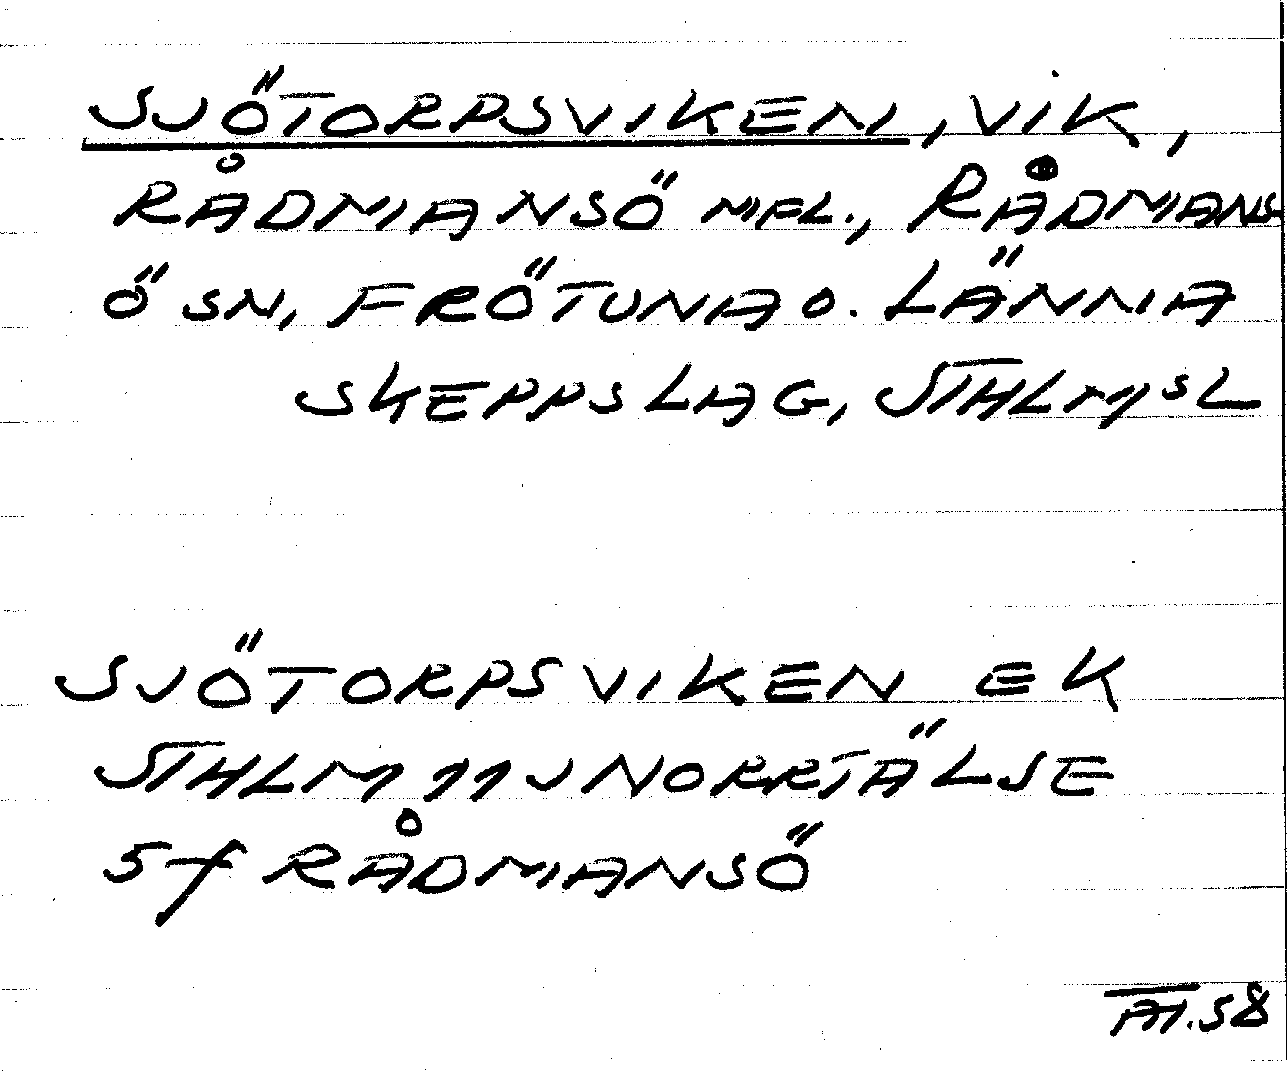 SJÖTORPSVIKEN, VIK,
RÅDMANSÖ MFL., RÅDMANS
Ö SN, FRÖTUNA O. LÄNNA
SKEPPSLAG, STHLMSL
SJÖTORPSVIKEN EK
STHLM 11 J NORRTÄLSE
5f RÅDMANSÖ
58